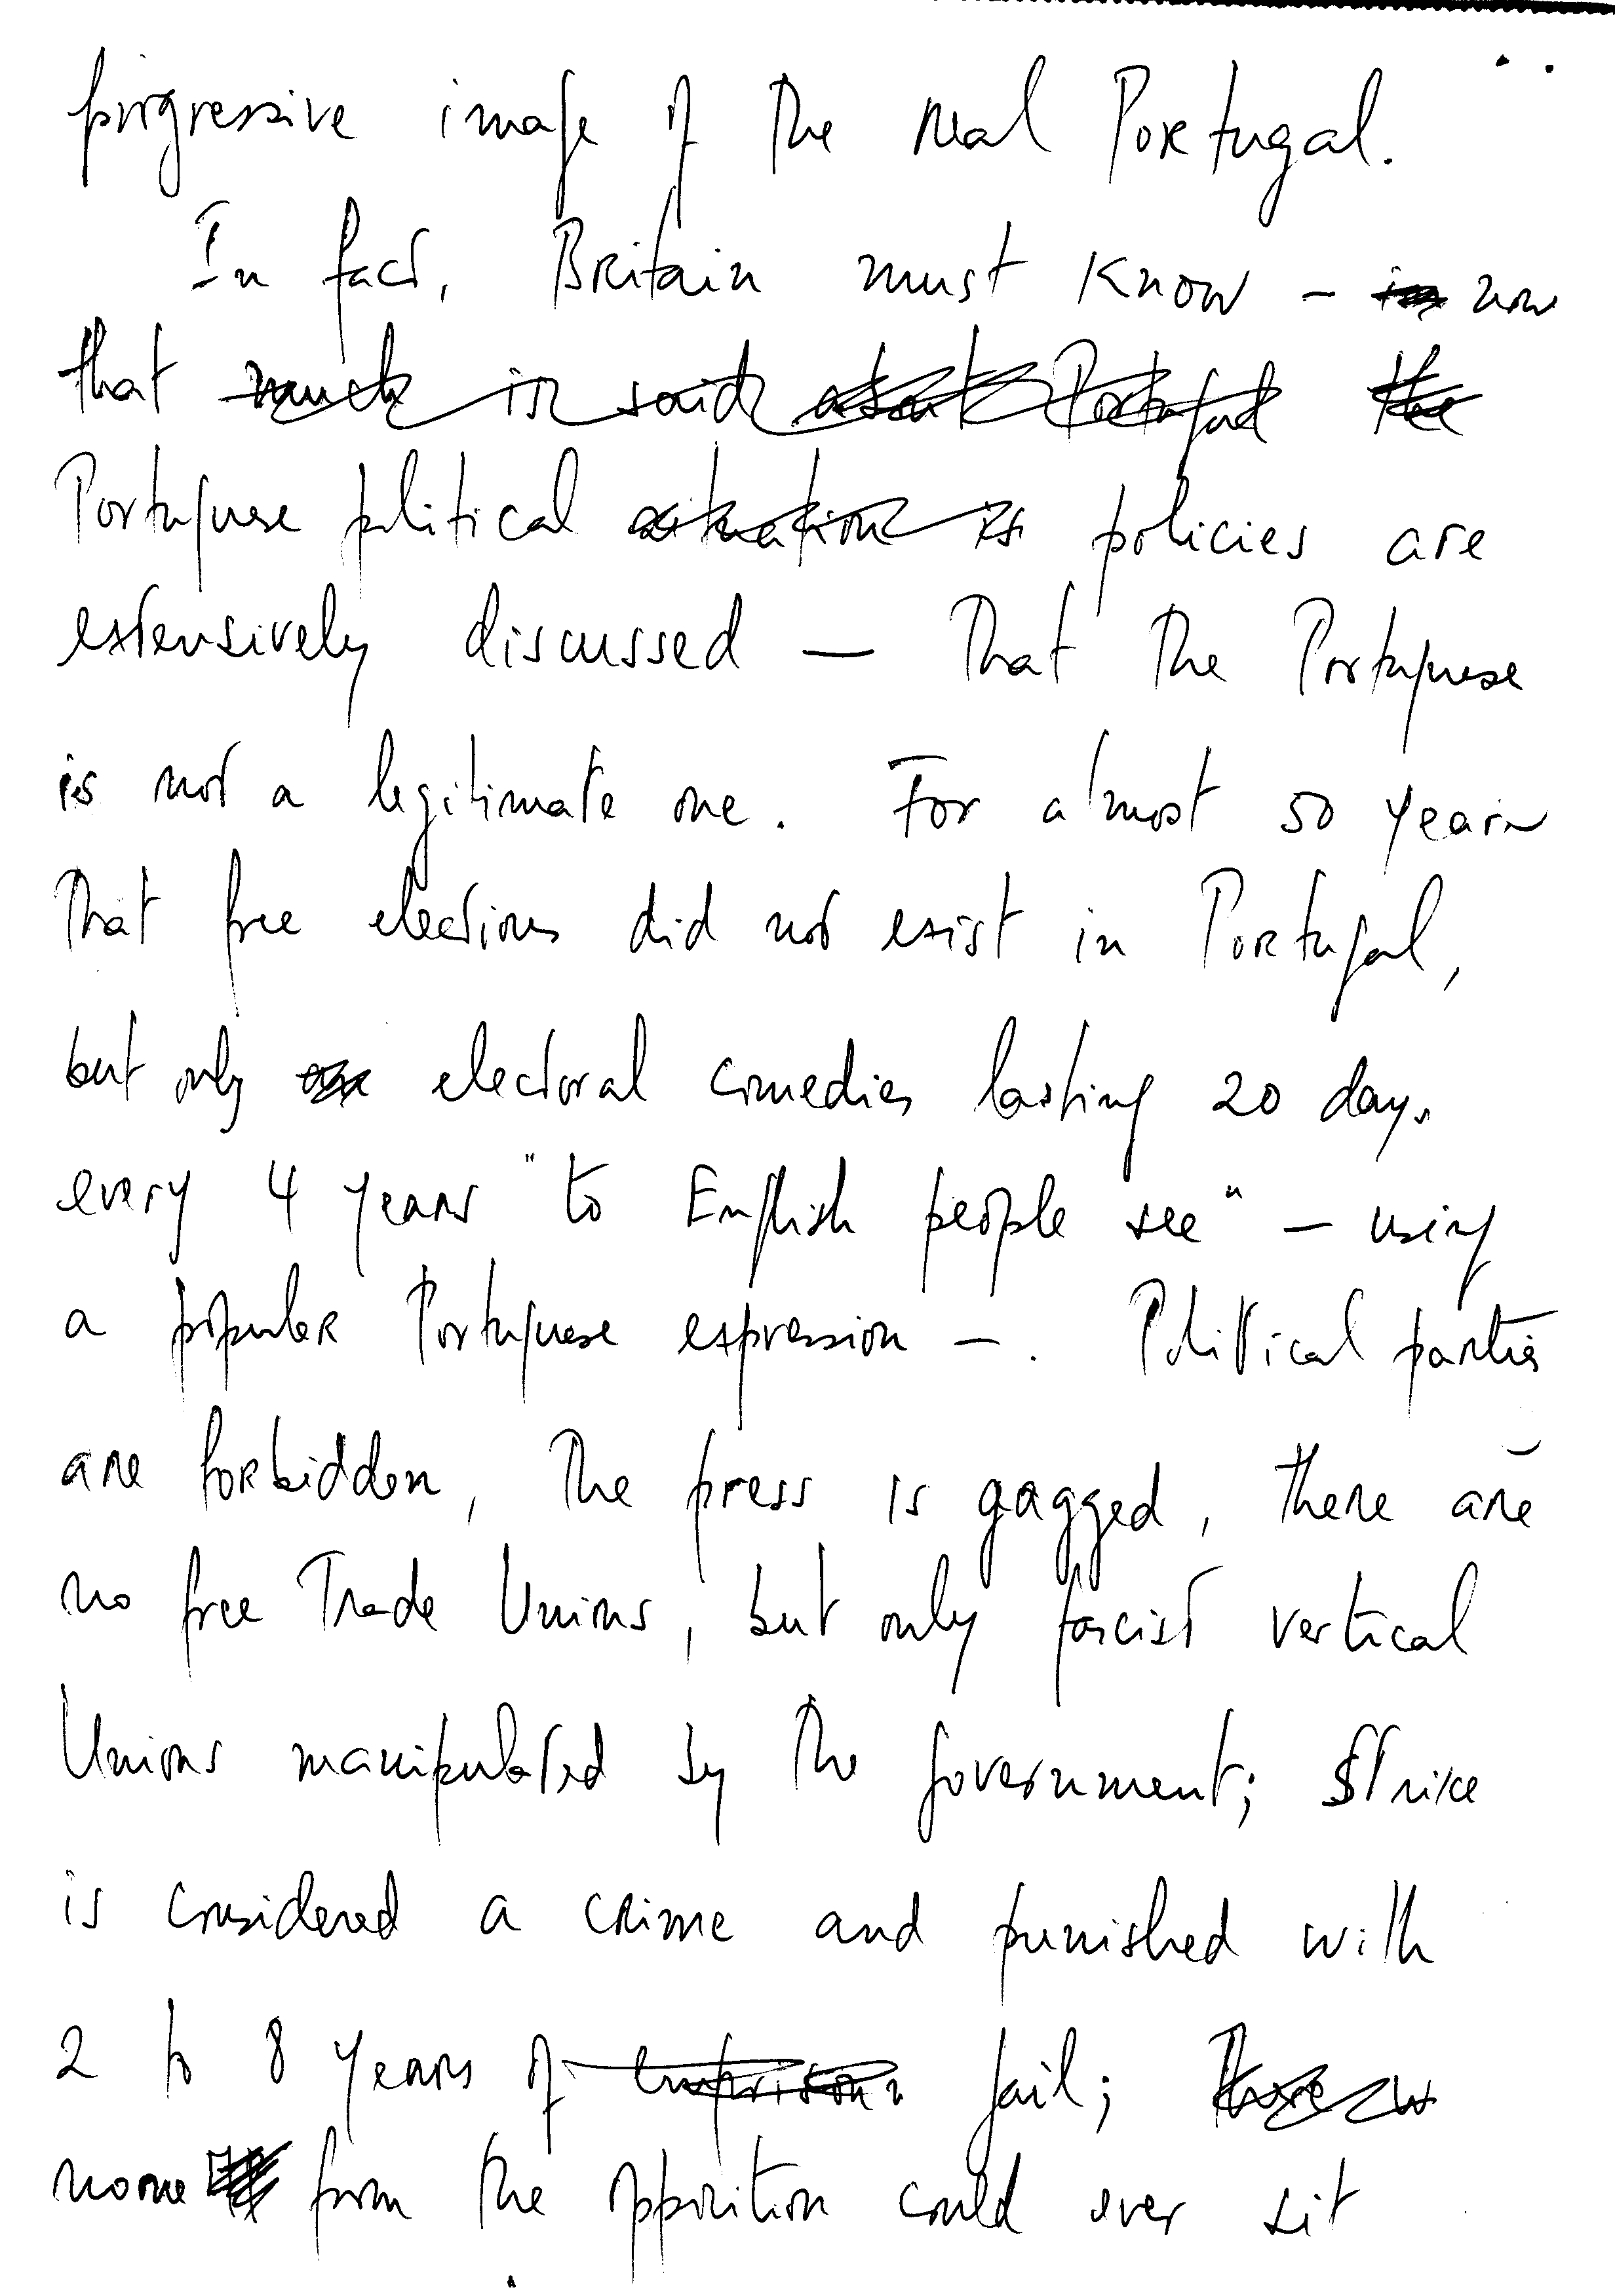 progressive image of the real Portugal.
In fact, Britain must know - now
that much is said about Portugal the
Portuguese political situation is policies are
extensively discussed — that the Portuguese
is not a legitimate one. For almost 50 years
that free elections did not exist in Portugal,
but only electoral comedies lasting 20 days
every 4 years "to English people see" - using
a popular Portuguese expression -. Political parties
are forbidden, the press is gagged, there are
no free Trade Unions, but only fascist vertical
Unions manipulated by the government; Strike
is considered a crime and punished with
2 to 8 years of jail; there is
none from the opposition could ever sit